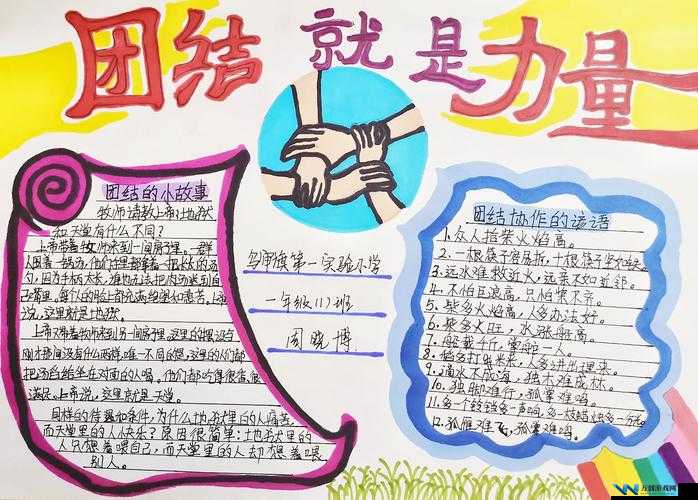 团结就是力量
团结的小故事
牧师请教上帝:地狱
和天堂有什么不同?
上帝带着牧师来到一间房子里。一群
人围着一锅肉汤,他们手里都拿着一把长长的汤
勺,因为手柄太长,谁也无法把肉汤送到自
己嘴里。每个人的脸上都充满绝望和悲苦。上帝
说,这里就是地狱。
上帝又带着牧师来到另一间房子里。这里的摆设与
刚才那间没有什么两样,唯一不同的是,这里的人们都
把汤舀给坐在对面的人喝。他们都吃得很香,很
满足。上帝说,这里就是天堂。
同样的待遇和条件,为什么地狱里的人痛苦,
而天堂里的人快乐?原因很简单:地狱里的
人只想着喂自己,而天堂里的人却想着喂
别人。
第一实验小学
一年级(1)班
周晓博
团结协作的谚语
1.众人拾柴火焰高。
2.一根筷子容易折,十根筷子坚如铁
3.远水难救近火,远亲不如近邻。
4.不怕巨浪高,只怕桨不齐。
5.柴多火焰高,人多办法好。
6.柴多火旺,水涨船高。
7.船载千斤,掌舵一人。
8.稻多打出米来,人多讲出理来。
9.滴水不成海,独木难成林。
10.独脚难行,孤掌难鸣。
11.多个铃铛多一声响,多一枝蜡烛多一分光
12.孤雁难飞,孤掌难鸣。
万创游戏网